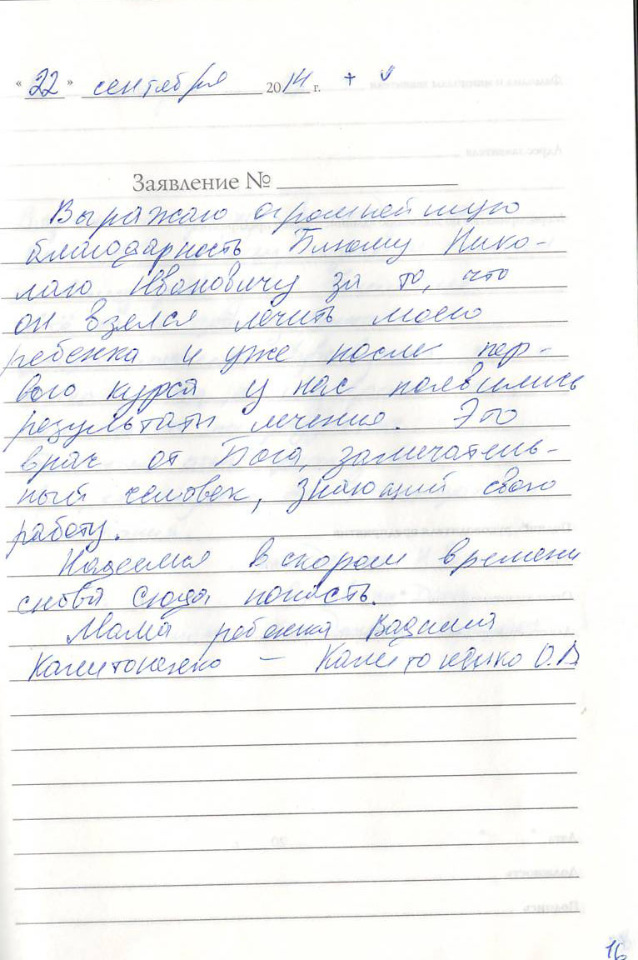 « 22 » сентября 2014 г. + v
Заявление №
Выражаю огромнейшую
благодарность Блюму Нико-
лаю Ивановичу за то, что
он взелся лечить моего
ребенка и уже после пер-
вого курса у нас появились
результаты лечение. Это
врач от Бога, замичатель-
ный человек, знающий свою
работу.
Надеемся в скором времени
снова сюда попасть.
Мама ребенка
О.В.
16